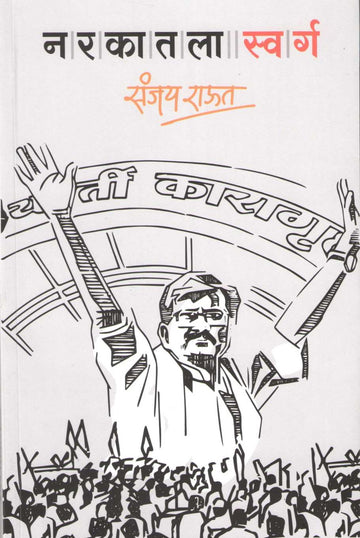 नरकातला स्वर्ग
संजय राऊत
यवर्ती कारागृह